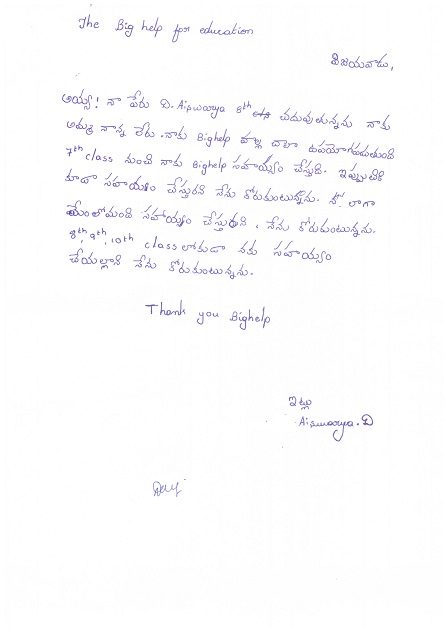 The Big help for education
విజయవాడ,
అయ్యా! నా పేరు D. Aiswarya 8th చదువుతున్నను నాకు
అమ్మ నాన్న లేరు. నాకు Bighelp వాల్ల చాలా ఉపయోగపడుతుంది
7th class నుంచి నాకు Bighelp సహాయ్యం చేస్తుంది. ఇప్పుటికి
కూడా సహాయం చేస్తురని నేను కోరుకుంటున్నాను. నా లాగా
సహాయ్యం చేస్తురని, నేను కోరుకుంటున్నను.
8th, 9th, 10th class లోకుడా నకు సహాయ్యం
చేయల్లాని నేను కోరుకుంటున్నను.
Thank you Bighelp
ఇట్లు
Aiswarya.D